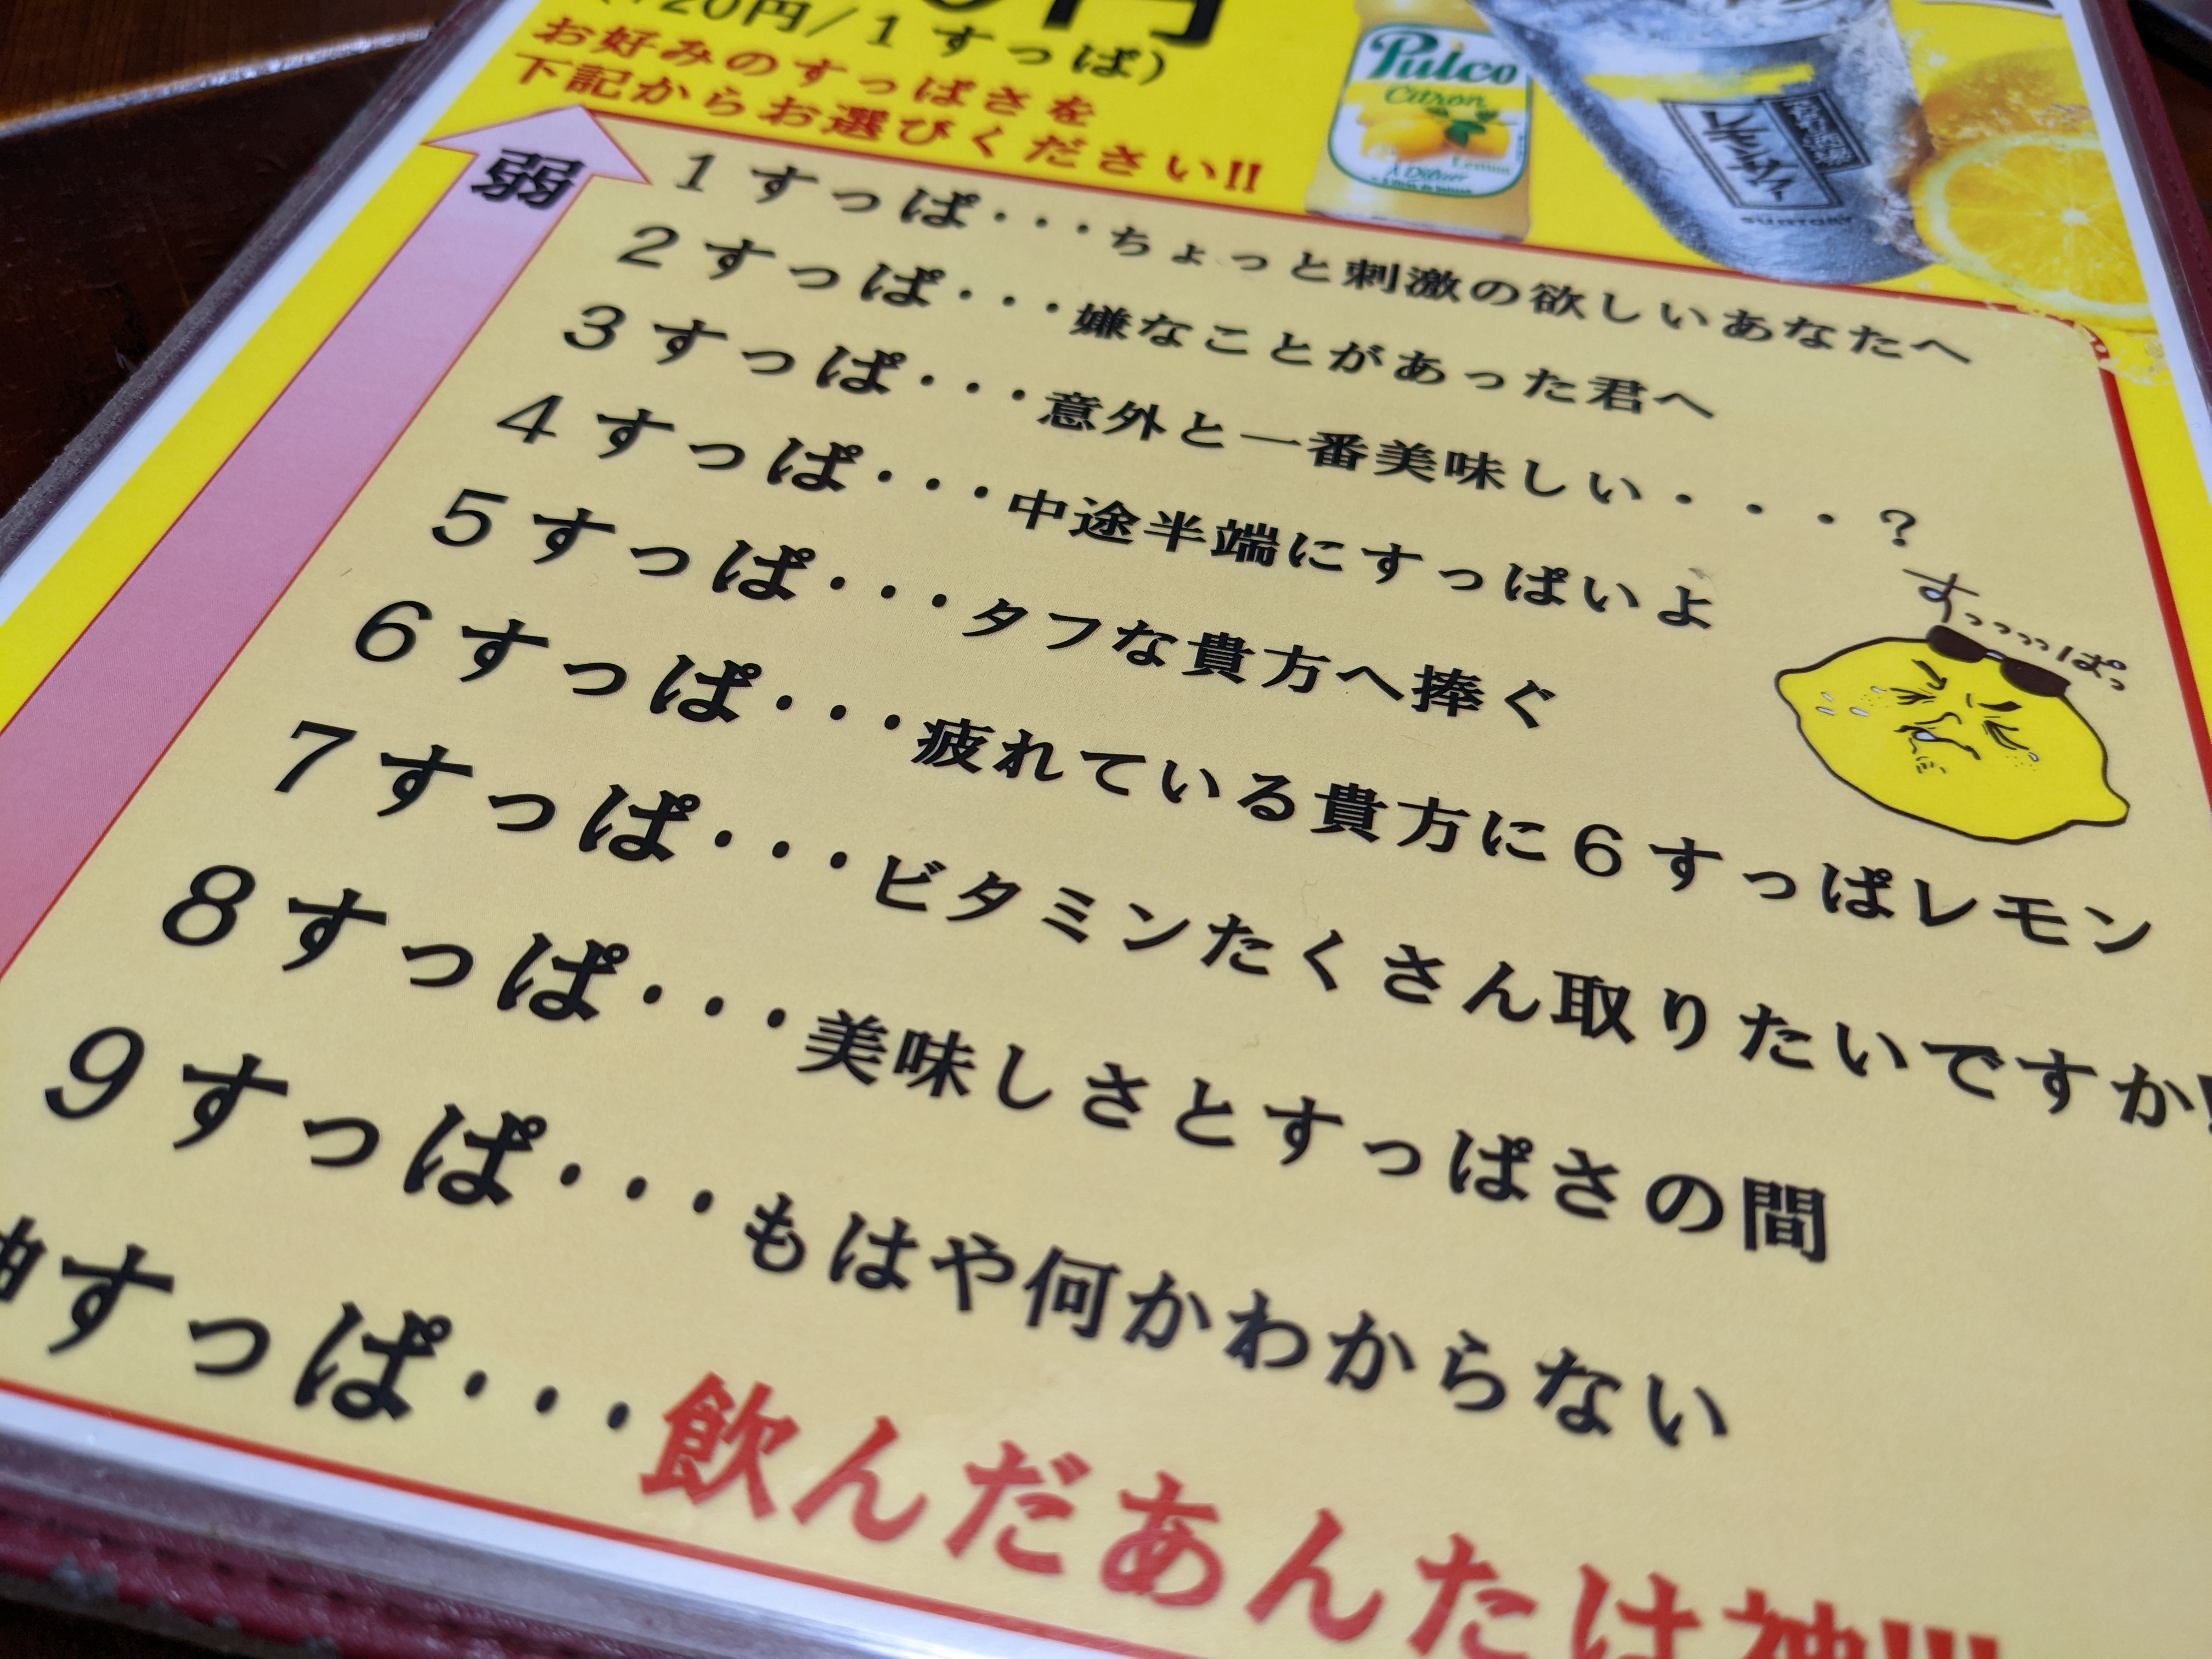 円
20円/1すっぱ)
お好みのすっぱさを
下記からお選びください!!
Pulco
Citron
Lemon
À Diluer
レモンサワー
SUNTORY
弱
1すっぱ・・・ちょっと刺激の欲しいあなたへ
2すっぱ・・・嫌なことがあった君へ
3すっぱ・・・意外と一番美味しい・・・?
4すっぱ・・・中途半端にすっぱいよ
5すっぱ・・・タフな貴方へ捧ぐ
6すっぱ・・・疲れている貴方に6すっぱレモン
7すっぱ・・・ビタミンたくさん取りたいですか!
8すっぱ・・・美味しさとすっぱさの間
9すっぱ・・・もはや何かわからない
神すっぱ・・・飲んだあんたは神!!!
すっっっっぱっ